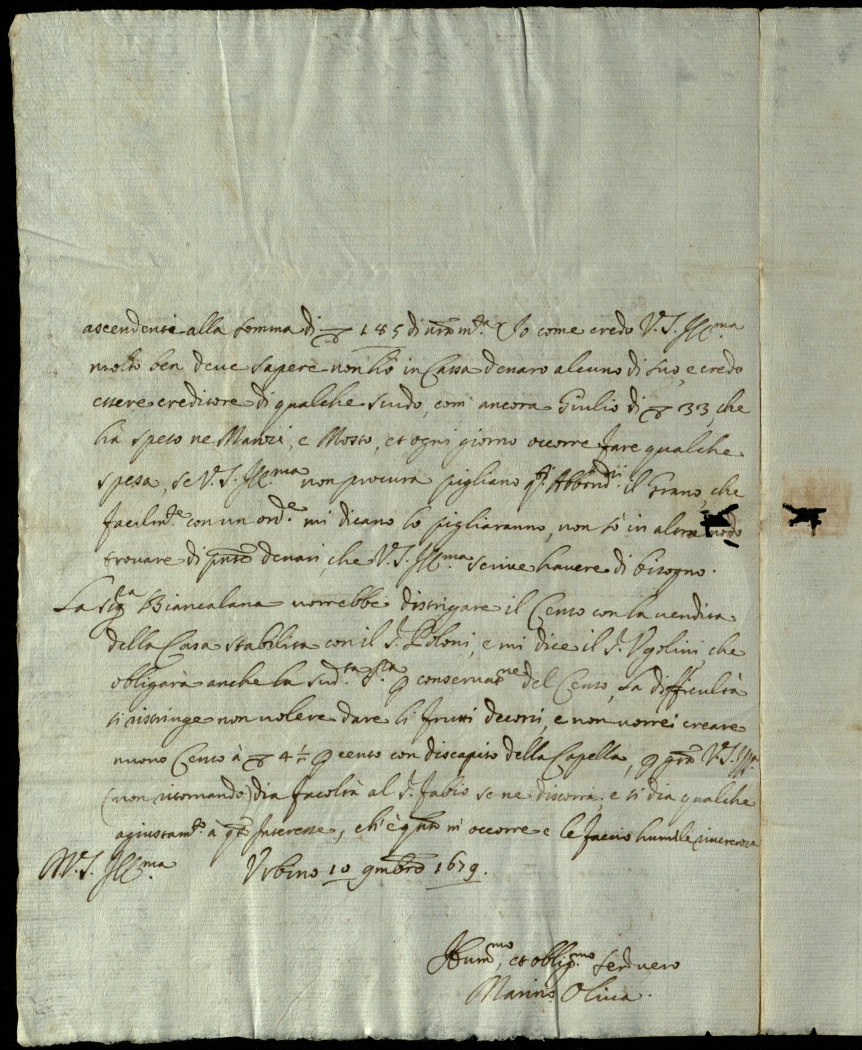 ascendente alla somma di ∇ 185 di n͠ra m.ta Io come credo V.S. Ill.ma
molto ben deve sapere non hò in Cassa denaro alcuno di suo, e credo
essere creditore di qualche scudo, come ancora Giulio di ∇ 33, che
hà speso ne Manzi, e Mosto, et ogni giorno occorre fare qualche
spesa, se V.S. Ill.ma non procura pigliano q.ti Abbond.ti il Grano, che
facilm.te con un ord.e mi dicano lo pigliaranno, non sò in altro modo
trovare di p͠nte denari, che V.S. Ill.ma scrive havere di bisogno.
La Sig.ra Biancalana vorrebbe distrigare il Censo con la vendita
della Casa stabilita con il S. Poloni, e mi dice il S. Vgolini, che
obligarà anche la sud.ta S.ra p conservat.ne del Censo, La difficultà
si ristringe non volere dare li frutti decorsi, e non vorrei creare
nuovo Censo à ∇ 4½ p cento con discapito della Capella, p q͠to V.S. Ill.ma
(non ritornando) dia facoltà al S. Fabio se ne discorra, e si dia qualche
agiustam.to à q͠to Interesse, ch'è q͠nto m'occorre e le faccio humile riverenza
D.V.S. Ill.ma Vrbino 10 9mbre 1679.
Hum.mo, et oblig.mo Ser.e vero
Marino Oliva.